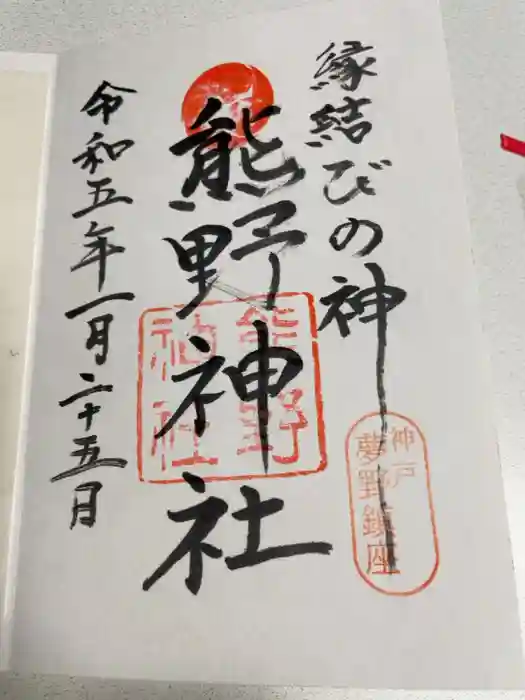 縁結びの神
神戸
夢野鎮座
熊野神社
熊野
神社
令和五年一月二十五月